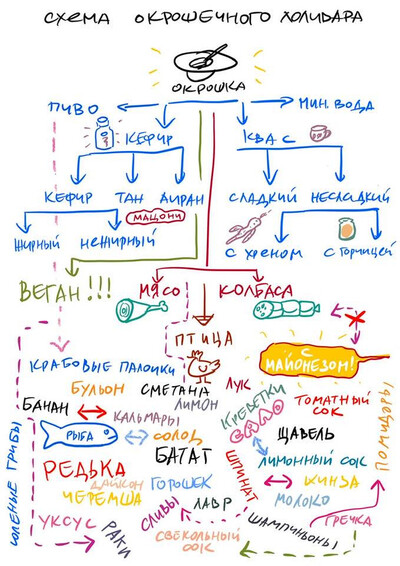 СХЕМА ОКРОШЕЧНОГО ХОЛИВАРА
ОКРОШКА
ПИВО
МИН. ВОДА
КЕФИР
КВАС
КЕФИР ТАН АЙРАН
СЛАДКИЙ НЕСЛАДКИЙ
МАЦОНИ
ЖИРНЫЙ НЕЖИРНЫЙ
С ХРЕНОМ С ГОРЧИЦЕЙ
ВЕГАН!!!
МЯСО КОЛБАСА
ПТИЦА
С МАЙОНЕЗОМ!
КРАБОВЫЕ ПАЛОЧКИ
БУЛЬОН СМЕТАНА ЛУК
БАНАН ЛИМОН КРЕВЕТКИ ТОМАТНЫЙ СОК
КАЛЬМАРЫ
РЫБА СОЛОД ЩАВЕЛЬ
БАТАТ
РЕДЬКА ШПИНАТ ЛИМОННЫЙ СОК
ДАЙКОН ГОРОШЕК КИНЗА
ЧЕРЕМША МОЛОКО
СЛИВЫ ЛАВР
УКСУС РАКИ ШАМПИНЬОНЫ ГРЕЧКА
СВЕКОЛЬНЫЙ СОК
СОЛЕНЫЕ ГРИБЫ
ПОМИДОРЫ